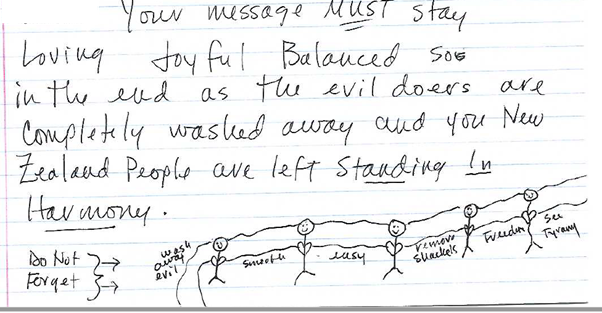 Your message MUST stay
Loving Joyful Balanced so
in the end as the evil doers are
completely washed away and you New
Zealand People are left Standing In
Harmony.
Do Not
Forget
wash away evil
smooth
easy
remove shackels
Freedom
see Tyrany